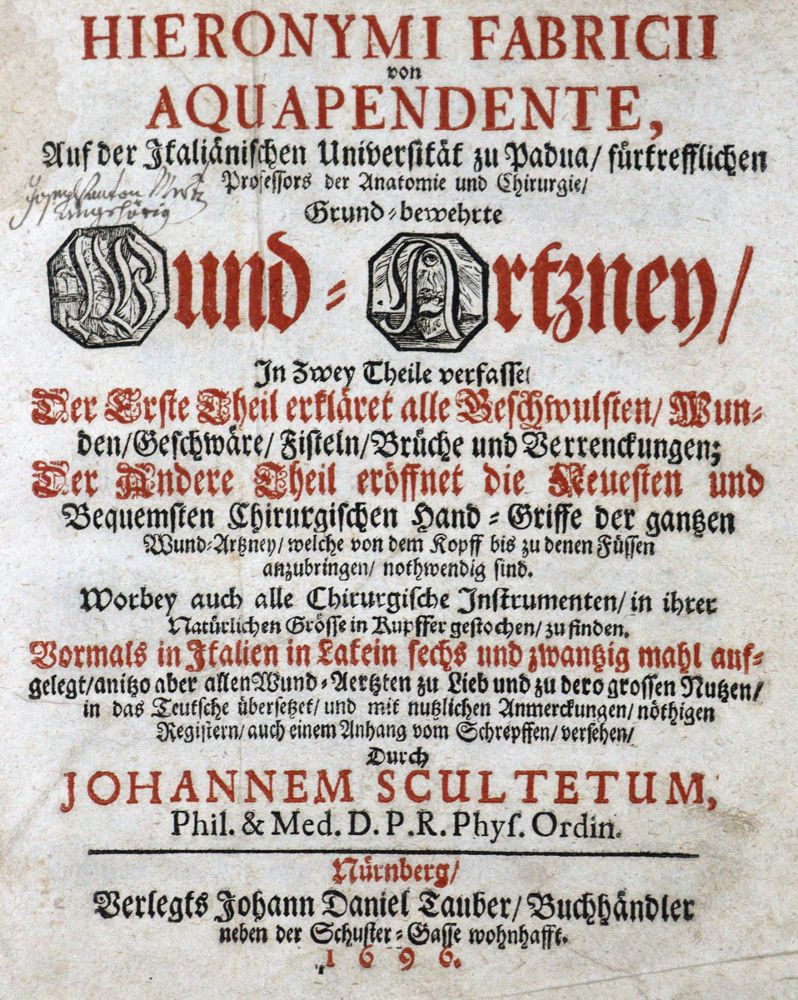 HIERONYMI FABRICII
von
AQUAPENDENTE,
Auf der Italiänischen Universität zu Padua/ fürtrefflichen
Professors der Anatomie und Chirurgie/
Grund-bewehrte
Wund-Artzney/
In Zwey Theile verfasse/
Der Erste Theil erkläret alle Geschwulsten/ Wun-
den/Geschwäre/ Fisteln/Brüche und Verrenckungen;
Der Andere Theil eröffnet die Neuesten und
Bequemsten Chirurgischen Hand-Griffe der gantzen
Wund-Artzney/ welche von dem Kopff bis zu denen Füssen
anzubringen/ nothwendig sind.
Worbey auch alle Chirurgische Instrumenten/ in ihrer
Natürlichen Grösse in Kupffer gestochen/ zu finden.
Vormals in Italien in Latein sechs und zwantzig mahl auf-
gelegt/anitzo aber allen Wund-Aertzten zu Lieb und zu dero grossen Nutzen/
in das Teutsche übersetzet/ und mit nutzlichen Anmerckungen/ nöthigen
Registern/ auch einem Anhang vom Schrepffen/ versehen/
Durch
JOHANNEM SCULTETUM,
Phil. & Med. D. P. R. Phyſ. Ordin.
Nürnberg/
Verlegts Johann Daniel Tauber/ Buchhändler
neben der Schuster-Gasse wohnhafft.
1696.